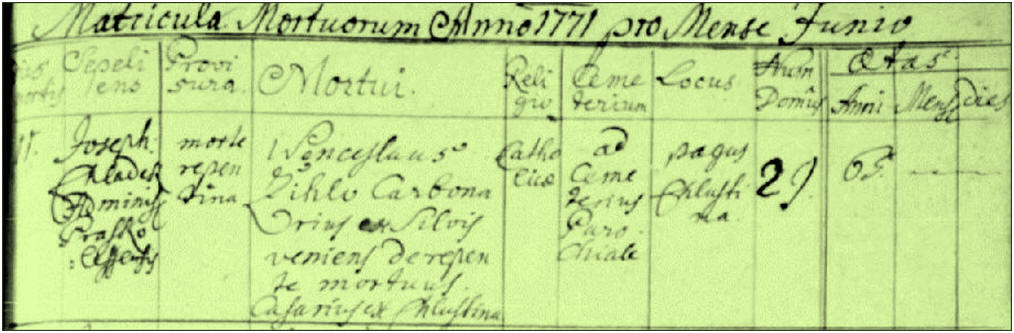 Matricula Mortuorum Anno 1771 pro Mense Junio
Sepeli
ens
Provi
sura.
Mortui.
Reli
gio
Ceme
terium
Locus
Num
Domûs
Ætas
Anni
Mens
dies
Joseph
Adminis
morte
repen
tina
Wenceslaus
Zihlo Carbona
rius ex Silvis
veniens derepen
te mortuus.
Casarius ex Chlustina
Catho
licæ
ad
Ceme
terius
Paro
chiale
pagus
Chlusti
na
29